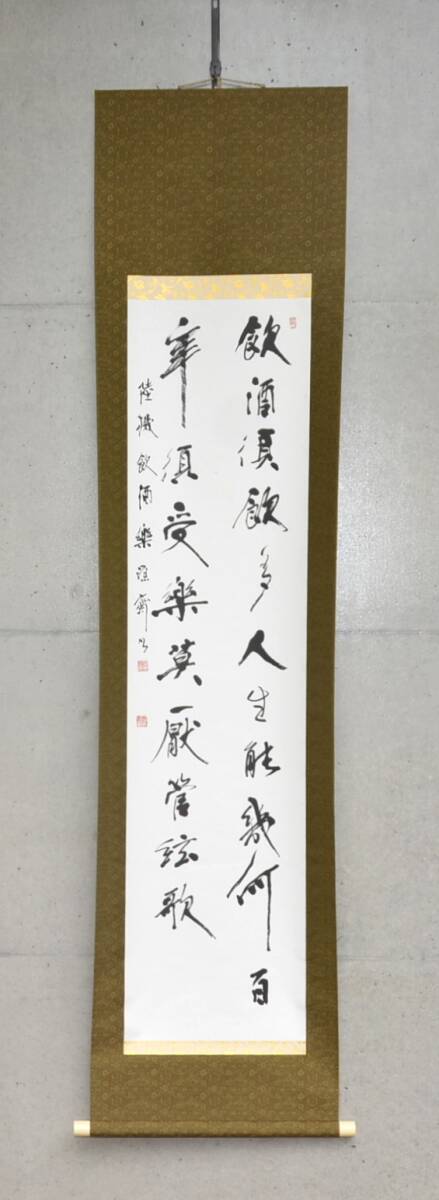 飲酒須飲多人生能幾何百
年須受樂莫厭管弦歌
陸機飲酒樂